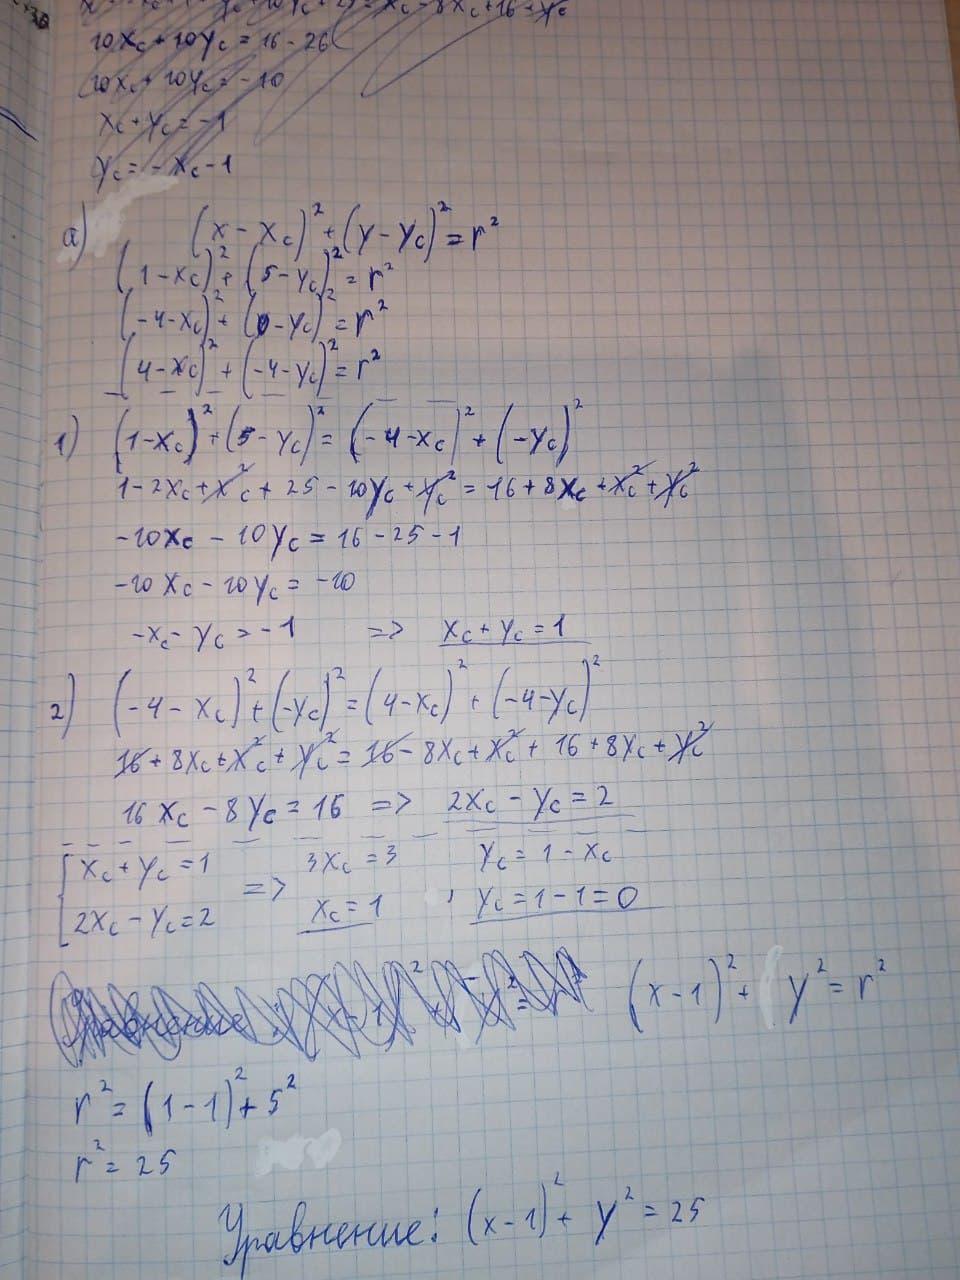 10xc + 10yc = 16 - 26
10xc + 10yc = -10
xc + yc = -1
yc = -xc - 1
а) (x - xc)² + (y - yc)² = r²
(1 - xc)² + (5 - yc)² = r²
(-4 - xc)² + (0 - yc)² = r²
(4 - xc)² + (-4 - yc)² = r²
1) (1 - xc)² + (5 - yc)² = (-4 - xc)² + (-yc)²
1 - 2xc + xc² + 25 - 10yc + yc² = 16 + 8xc + xc² + yc²
-10xc - 10yc = 16 - 25 - 1
-10xc - 10yc = -10
-xc - yc = -1 => xc + yc = 1
2) (-4 - xc)² + (-yc)² = (4 - xc)² + (-4 - yc)²
16 + 8xc + xc² + yc² = 16 - 8xc + xc² + 16 + 8yc + yc²
16xc - 8yc = 16 => 2xc - yc = 2
xc + yc = 1 => 3xc = 3 yc = 1 - xc
2xc - yc = 2 xc = 1, yc = 1 - 1 = 0
(x - 1)² + y² = r²
r² = (1 - 1)² + 5²
r² = 25
Уравнение: (x - 1)² + y² = 25